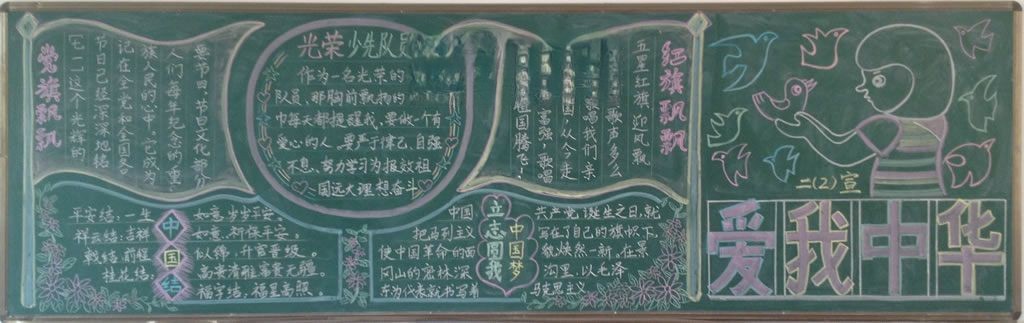 党旗飘飘
七一这个光辉的
节日已经深深地铭
记在全党和全国各
族人民的心中。它成为
人们每年纪念的重
要节日。节日文化部分
光荣少先队员
作为一名光荣的
队员，那胸前飘扬的
巾每天都提醒我，要做一个有
爱心的人，要严于律己，自强
不息，努力学习为报效祖
国远大理想奋斗
红旗飘飘
五星红旗，迎风飘
歌声多么
歌唱我们亲
国，从今走
富强，歌唱
国腾飞，
中国结
平安结：一生 如意，岁岁平安。
祥云结：吉祥 如意，祈保平安。
戟结：前程 似锦，升官晋级。
桂花结： 高贵清雅，富贵无疆。
福字结：福星高照。
立志圆我
中国梦
中国 共产党诞生之日，就
把马列主义 写在了自己的旗帜下，
使中国革命的面 貌焕然一新。在景
冈山的密林深 沟里，以毛泽
东为代表就书写着 马克思主义
二(2)宣
爱我中华